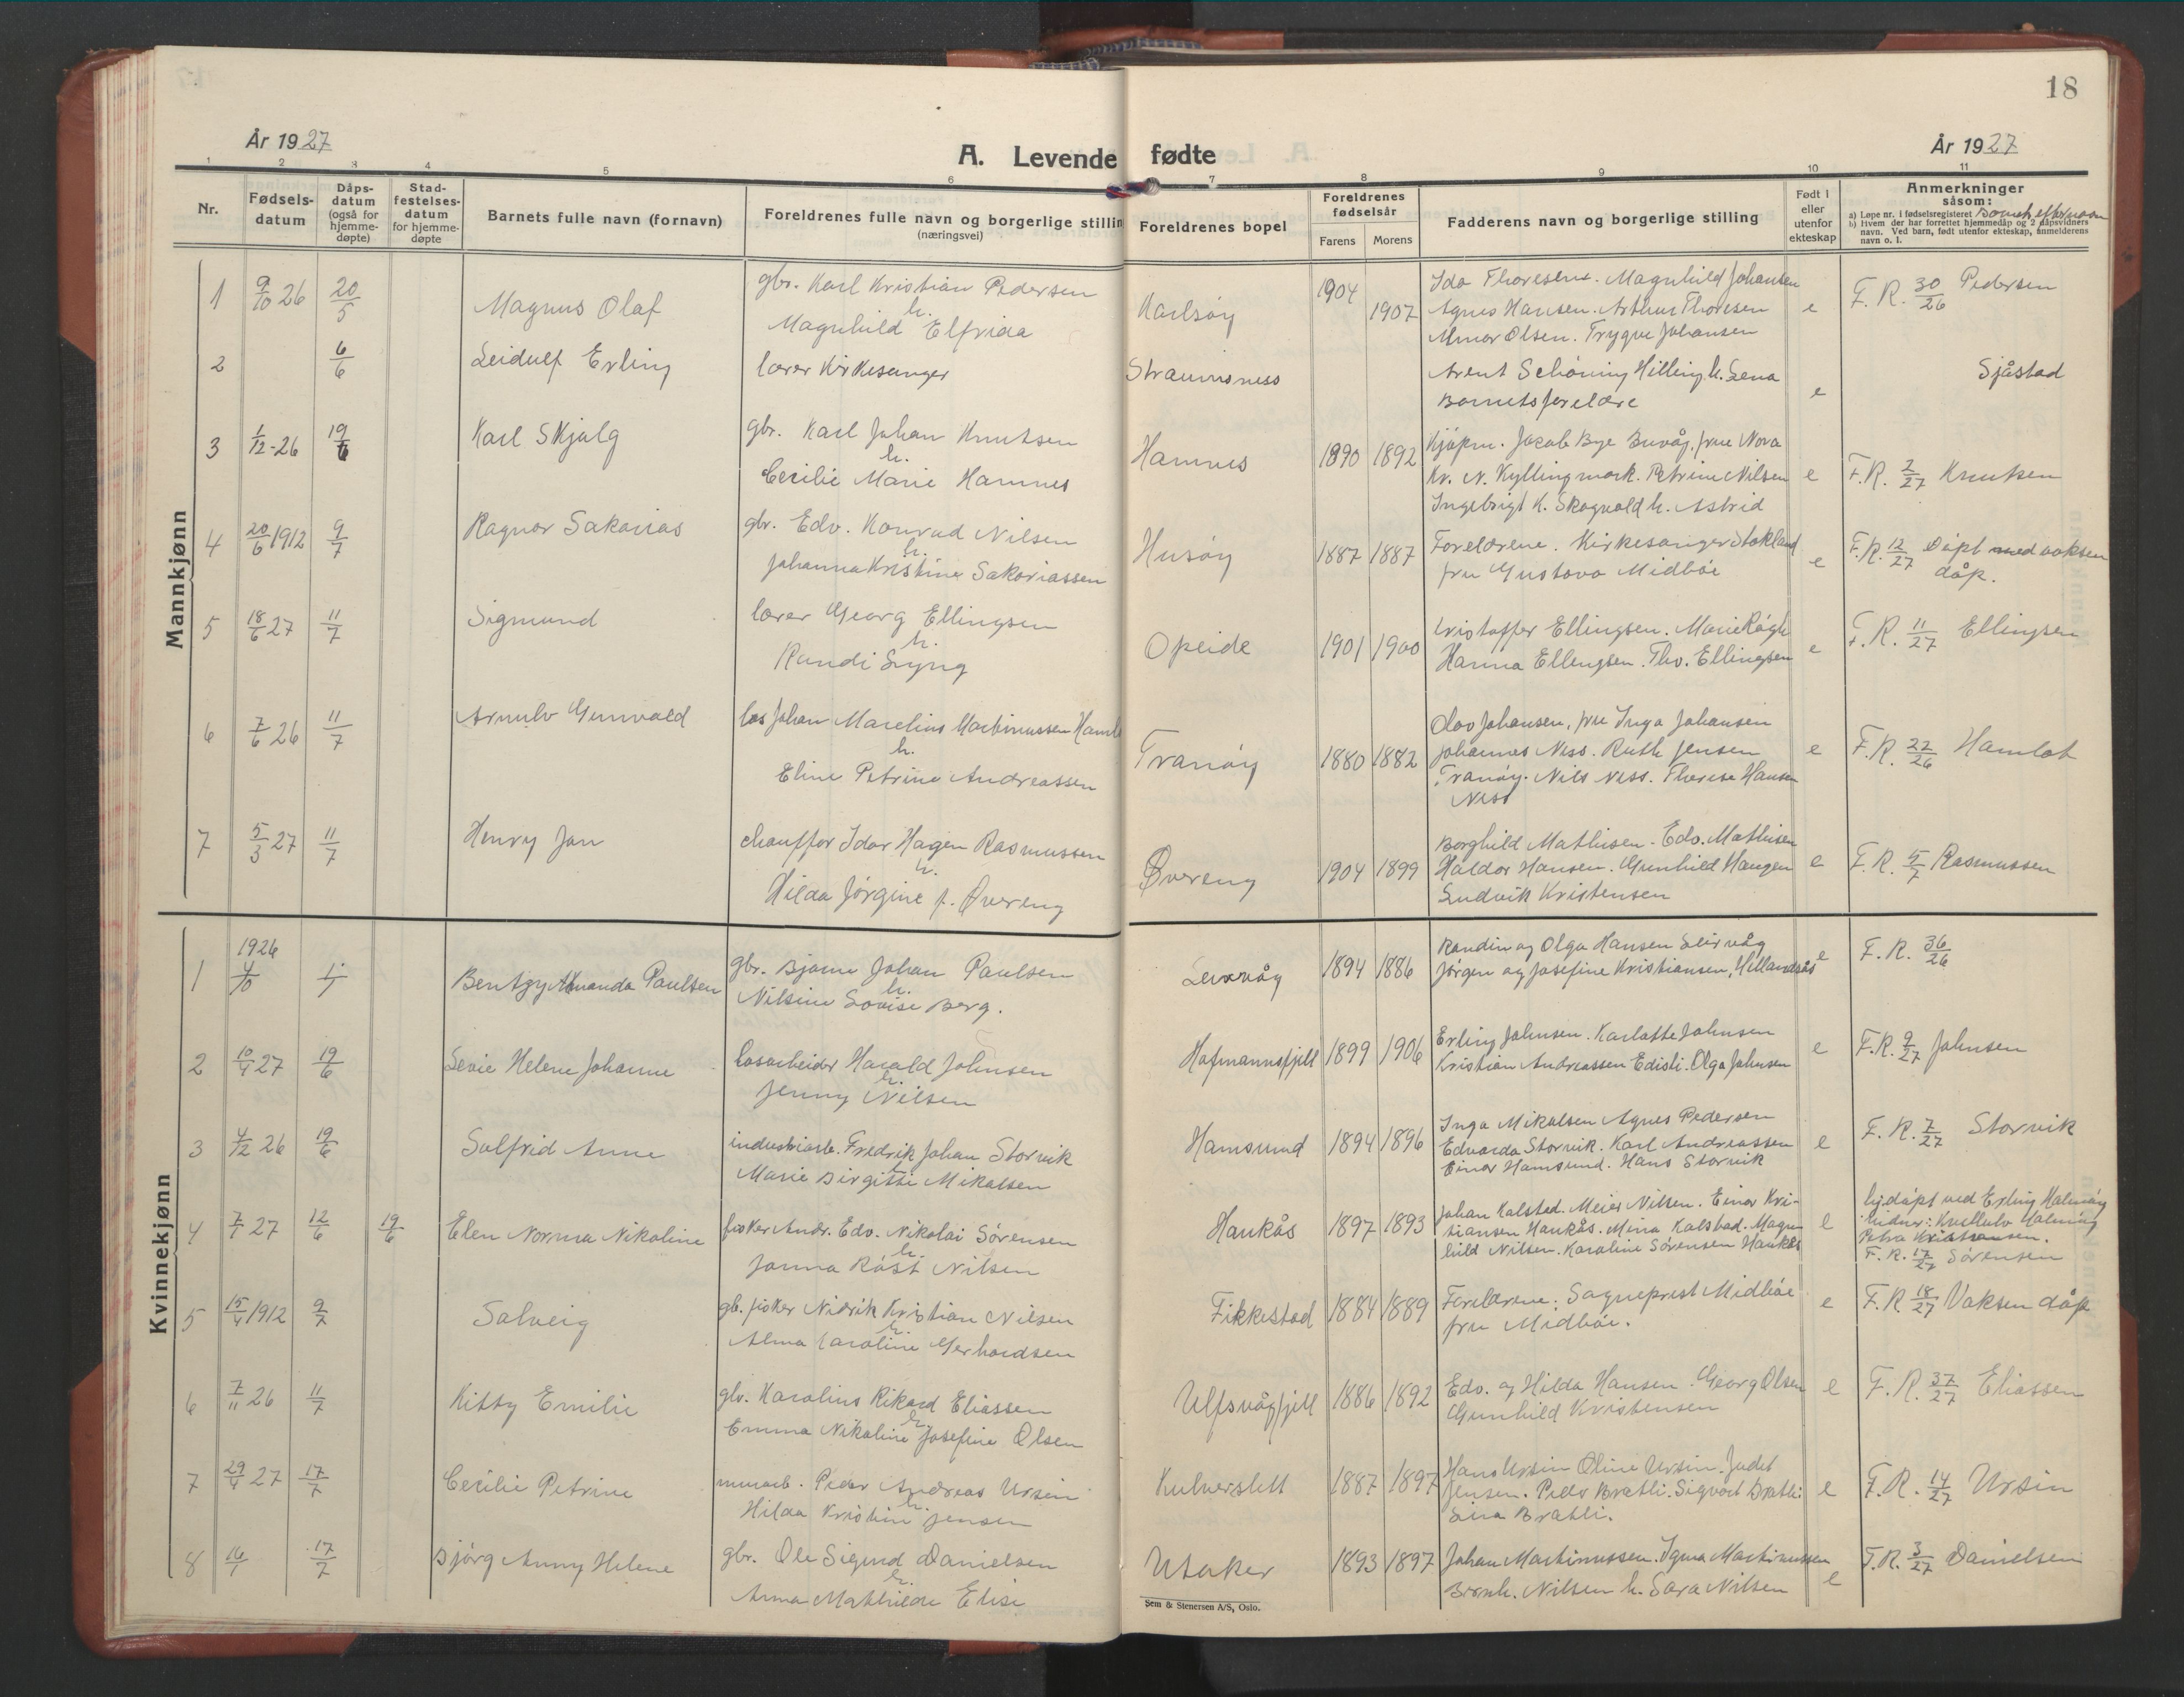 18
År 1927
A. Levende fødte
År 1927
1 2 3 4 5 6 7 8 9 10 11
Nr.
Fødsels-
datum
Dåps-
datum
(også for
hjemme-
døpte)
Stad-
festelses-
datum
for hjemme-
døpte
Barnets fulle navn (fornavn)
Foreldrenes fulle navn og borgerlige stillin
(næringsvei)
Foreldrenes bopel
Foreldrenes
fødselsår
Farens Morens
Fadderens navn og borgerlige stilling
Født i
eller
utenfor
ekteskap
Anmerkninger
såsom:
a) Løpe nr. i fødselsregisteret
b) Hvem der har forrettet hjemmedåp og 2 dåpsvidners
navn. Ved barn, født utenfor ekteskap, anmelderens
navn o. l.
Mannkjønn
1 9/10 26 20/5 Magnus Olaf
gbr. Karl Kristian Pedersen
h.
Magnhild Elfrida
Karlsøy 1904 1907
Ida Thoresen. Magnhild Johansen
Agnes Hansen. Arthur Thoresen
Almar Olsen. Trygve Johansen
e F. R. 30/26 Pedersen
2 6/6 Leidulf Erling
lærer Kirkesanger
Straumsness
Arent Schöning Hilling h. Lena
Barnets forelære
e Sjåstad
3 1/12-26 19/6 Karl Skjalg
gbr. Karl Johan Knutsen
h.
Cecilie Marie Hamnes
Hamnes 1890 1892
Kjøpm. Jacob Bye Buvåg, frue Nora
Kr. N. Kyllingmark. Petrine Nilsen
Ingebrigt K. Skogvold h. Astrid
e F.R. 2/27 Knutsen
4 20/6 1912 9/7 Ragnar Sakarias
gbr. Edv. Konrad Nilsen
h.
Johanna Kristine Sakariassen
Husøy 1887 1887
Forelærene. Kirkesanger Stokland
fru Gustava Midbøe
e F.R. 12/27 Døpt med voksen
dåp.
5 18/6 27 11/7 Sigmund
lærer Georg Ellingsen
h.
Randi Lyng
Opeide 1901 1900
Kristoffer Ellingsen. Marie Rögh
Hanna Ellingsen. Thv. Ellingsen
e F. R. 11/27 Ellingsen
6 7/6 26 11/7 Arnulv Gunvald
los Johan Marelius Martinussen Haml
h.
Eline Petrine Andreassen
Tranøy 1880 1882
Olav Johansen, fru Inga Johansen
Johannes Ness. Ruth Jensen
Tranøy. Nils Ness. Therese Hansen
Ness
e F.R. 22/26 Hamlot
7 5/3 27 11/7 Henry Jan
chauffør Idar Hagen Rasmussen
h.
Hilda Jørgine f. Øvereng
Øvereng 1904 1899
Borghild Mathisen. Edv. Mathisen
Haldor Hansen. Gunhild Haugen
Ludvik Kristensen
e F. R. 5/7 Rasmussen
Kvinnekjønn
1 1926 4/10 1/1 Bentzy Amanda Paulsen
gbr. Bjarne Johan Paulsen
h.
Nilsine Lovise Berg.
Leirvåg 1894 1886
Randin og Olga Hansen Leirvåg
Jørgen og Josefine Kristiansen, Hillandsås
e F. R. 36/26
2 10/4 27 19/6 Levie Helene Johanne
losarbeider Harald Johnsen
h.
Jenny Nilsen
Hofmannsfjell 1899 1906
Erling Johnsen. Karlotte Johnsen
Kristian Andreassen Edisli. Olga Johnsen
e F.R. 9/27 Johnsen
3 4/12 26 19/6 Solfrid Anne
industriarb. Fredrik Johan Storvik
h.
Marie Birgitte Mikalsen
Hamsund 1894 1896
Inga Mikalsen Agnes Pedersen
Edvarda Storvik. Karl Andreassen
Einar Hamsund. Hans Storvik
e F. R. 7/27 Storvik
4 7/1 27 12/6 19/6 Elen Norma Nikoline
fisker Andr. Edv. Nikolai Sørensen
h.
Janna Røst Nilsen
Haukås 1897 1893
Johan Kalstad. Meier Nilsen. Einar Kri-
stiansen Haukås. Mina Kalstad. Magn
hild Nilsen. Karoline Sørensen Haukås
e hj.døpt ved Erling Halmøy
Petra Kristiansen.
F. R. 17/27 Sørensen
5 15/4 1912 9/7 Solveig
gb. fisker Nidrik Kristian Nilsen
h.
Alma Caroline Gerhardsen
Fikkestad 1884 1889
Forelærene; Sogneprest Midbøe
fru Midbøe.
e F.R. 18/27 Voksen dåp
6 7/11 26 11/7 Kitty Emilie
gbr. Karolius Rikard Eliassen
h.
Emma Nikoline Josefine Olsen
Ulfsvågfjell 1886 1892
Edv. og Hilda Hansen. Georg Olsen
Gunhild Kristensen
e F. R. 37/27 Eliassen
7 29/4 27 17/7 Cecilie Petrine
murarb. Peder Andreas Ursin
h.
Hilda Kristine Jensen
Kulverslett 1887 1897
Hans Ursin Oline Ursin. Judit
Jensen. Peder Bratli. Sigvart Bratli
Lina Bratli.
e F. R. 14/27 Ursin
8 16/1 17/7 Bjørg Anny Helene
gbr. Ole Sigurd Danielsen
h.
Anna Mathilde Elise
Utaker 1893 1897
Johan Martinussen. Signa Martinussen
Bernh. Nilsen h. Sara Nilsen
e F.R. 3/27 Danielsen
Sem & Stenersen A/S, Oslo.